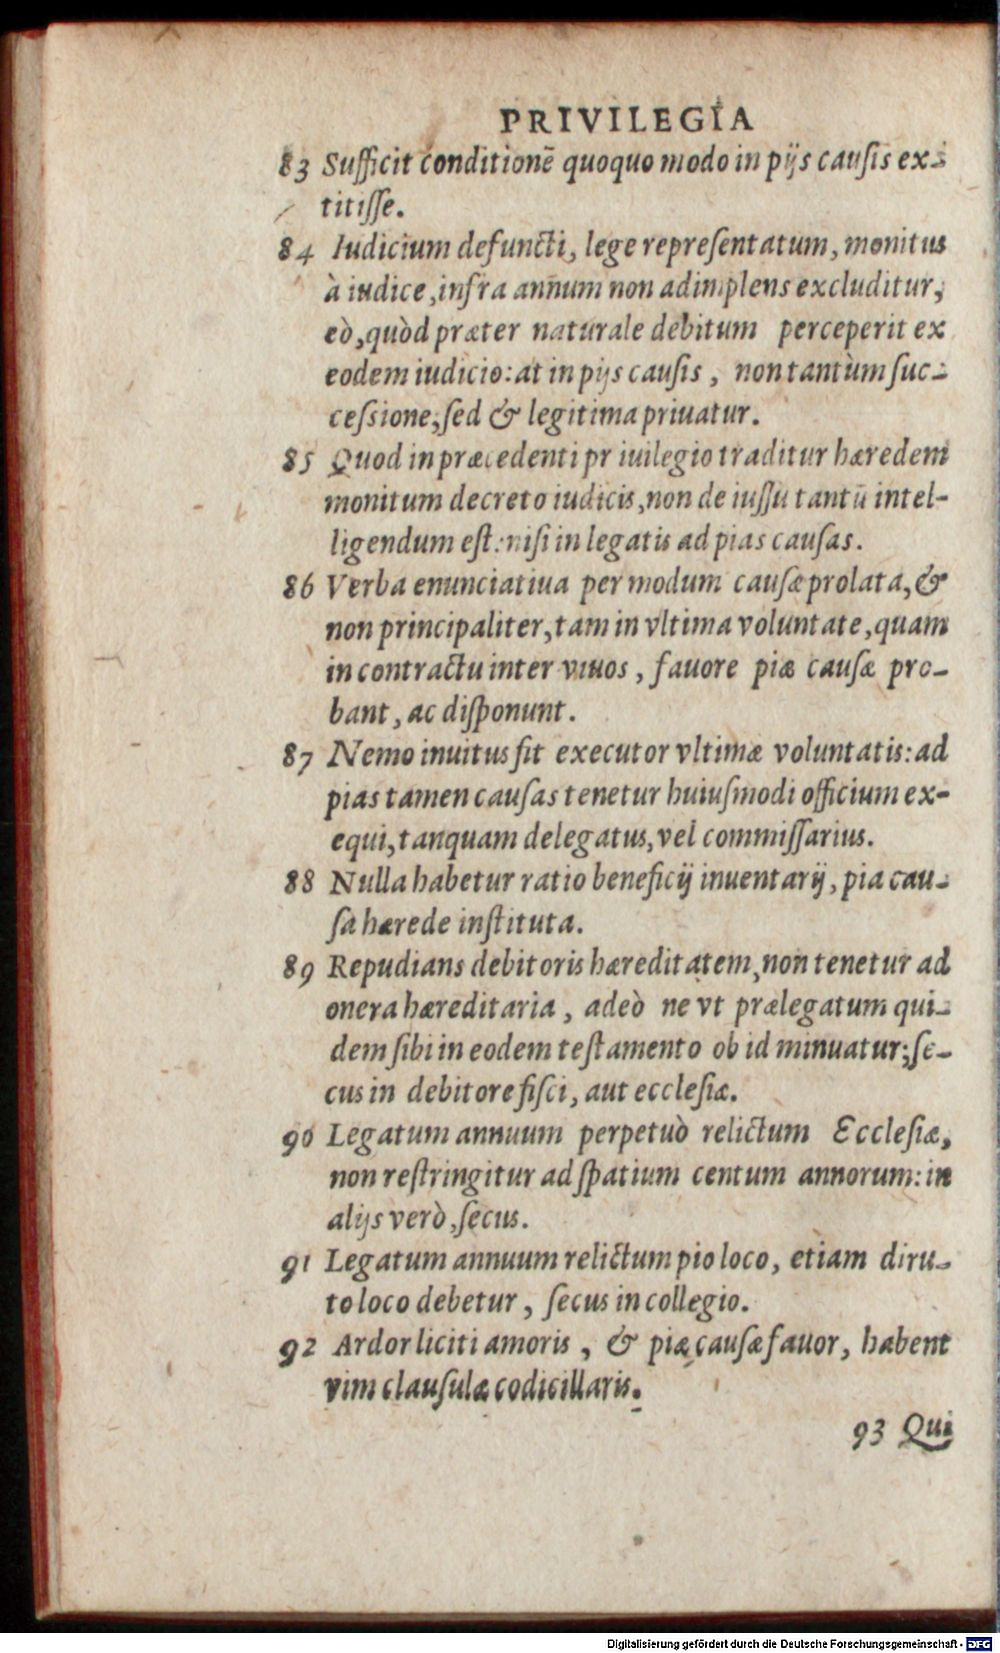 PRIVILEGIA
83 Sufficit conditionē quoquo modo in pijs causis ex-
titisse.
84 Iudicium defuncti, lege repręsentatum, monitus
à iudice, infra annum non adimplens excluditur,
eò, quòd præter naturale debitum perceperit ex
eodem iudicio: at in pijs causis, non tantùm suc-
cessione, sed & legitima priuatur.
85 Quod in præcedenti priuilegio traditur hæredem
monitum decreto iudicis, non de iussu tantū intel-
ligendum est: nisi in legatis ad pias causas.
86 Verba enunciatiua per modum causæ prolata, &
non principaliter, tam in vltima voluntate, quam
in contractu inter viuos, fauore piæ causæ pro-
bant, ac disponunt.
87 Nemo inuitus fit executor vltimæ voluntatis: ad
pias tamen causas tenetur huiusmodi officium ex-
equi, tanquam delegatus, vel commissarius.
88 Nulla habetur ratio beneficij inuentarij, pia cau-
sa hærede instituta.
89 Repudians debitoris hæreditatem, non tenetur ad
onera hæreditaria, adeò ne vt prælegatum qui-
dem sibi in eodem testamento ob id minuatur; se-
cus in debitore fisci, aut ecclesiæ.
90 Legatum annuum perpetuò relictum Ecclesiæ,
non restringitur ad spatium centum annorum: in
alijs verò, secus.
91 Legatum annuum relictum pio loco, etiam diru-
to loco debetur, secus in collegio.
92 Ardor liciti amoris, & piæ causæ fauor, habent
vim clausulæ codicillaris.
93 Qui
Digitalisierung gefördert durch die Deutsche Forschungsgemeinschaft - DFG